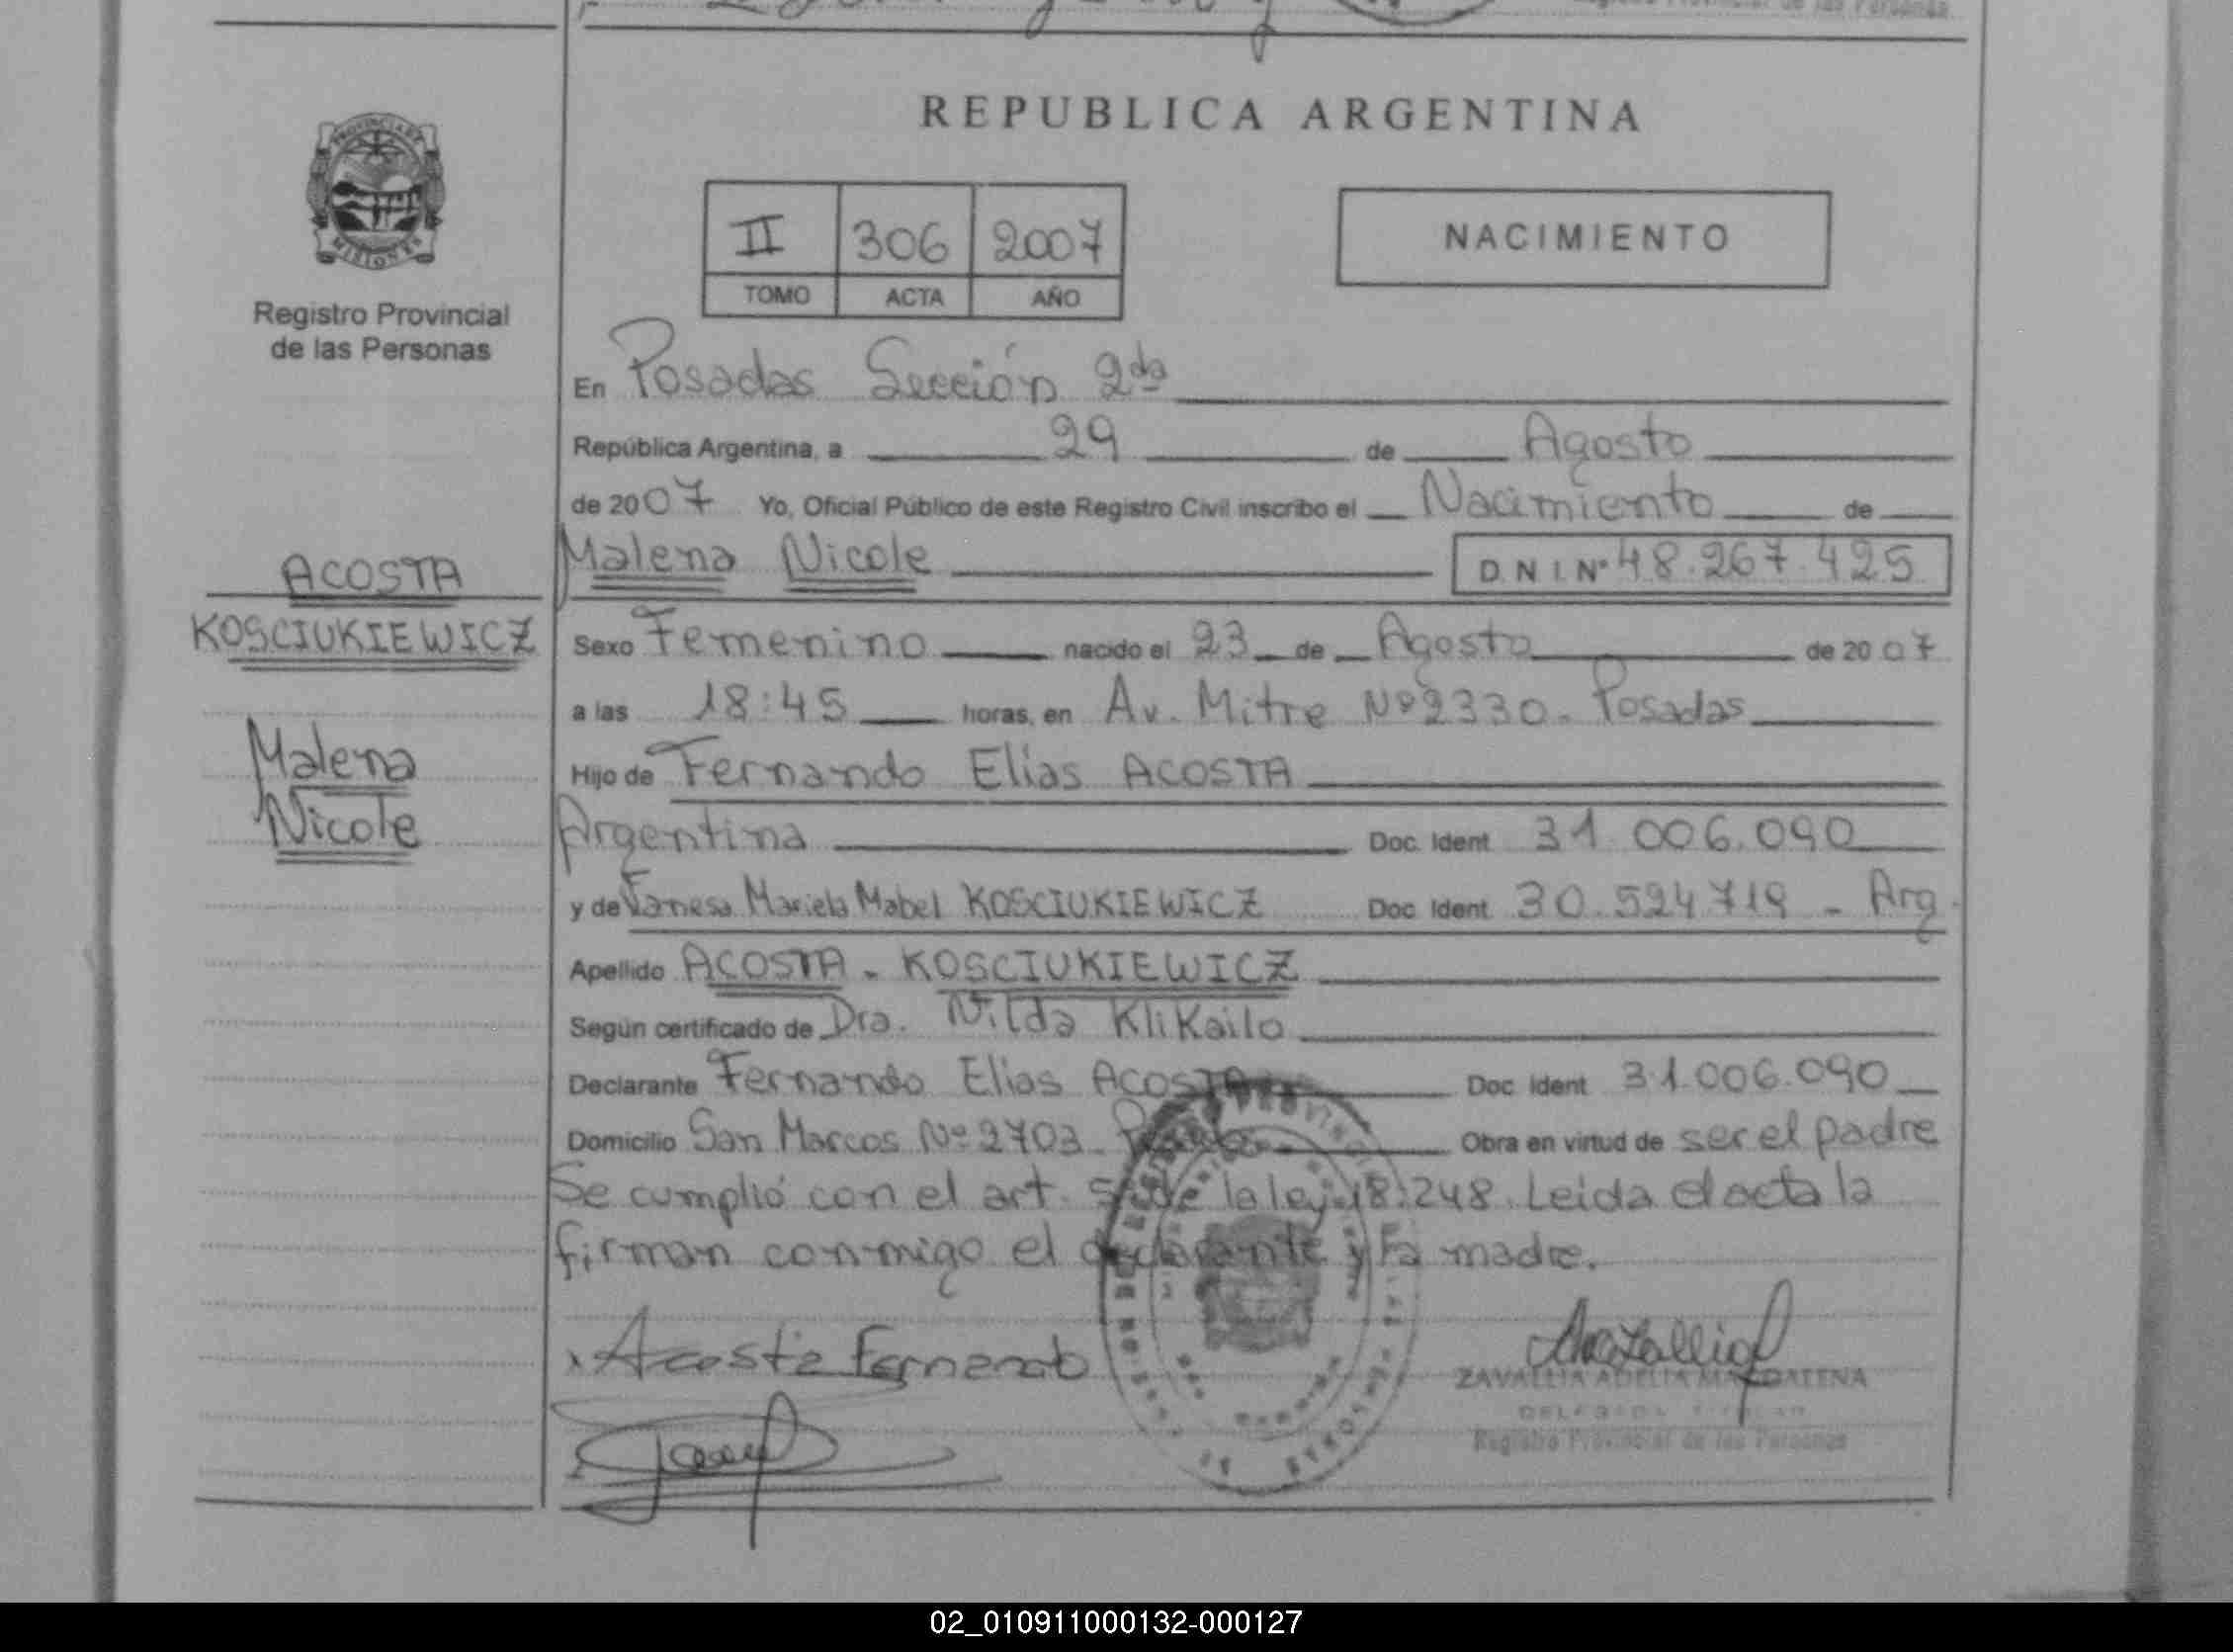 REPUBLICA ARGENTINA
PROVINCIA DE
MISIONES
Registro Provincial
de las Personas
II 306 2007
TOMO ACTA AÑO
NACIMIENTO
En Posadas Sección 2da
República Argentina, a 29 de Agosto
de 2007 Yo, Oficial Público de este Registro Civil inscribo el Nacimiento de
Malena Nicole D N I Nº 48.267.425
ACOSTA
KOSCIUKIEWICZ
Malena
Nicole
Sexo Femenino nacido el 23 de Agosto de 2007
a las 18:45 horas, en Av. Mitre Nº 2330. Posadas
Hijo de Fernando Elias ACOSTA
Argentina Doc. Ident 31.006.090
y de Vanesa Mariela Mabel KOSCIUKIEWICZ Doc Ident 30.524.719 - Arg.
Apellido ACOSTA - KOSCIUKIEWICZ
Según certificado de Dra. Nilda Klikailo
Declarante Fernando Elias ACOSTA Doc Ident 31.006.090
Domicilio San Marcos Nº 2703 - Obra en virtud de ser el padre
Se cumplió con el art. de la ley 18.248. Leida el acta la
firman conmigo el declarante y la madre.
Acosta Fernando
ZAVALLIA ADELIA MAGDALENA
DELEGADA TITULAR
Registro Provincial de las Personas
02_010911000132-000127